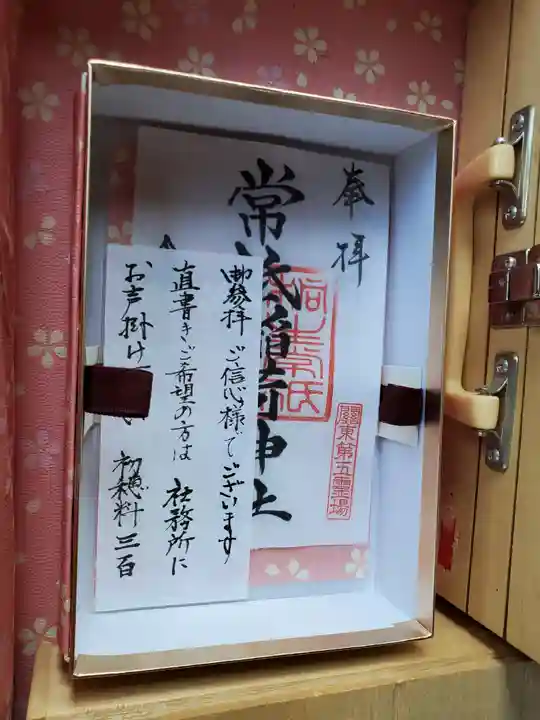 奉拝
常 稲荷神社
關東第五霊場
御参拝 ご信心様でございます
直書きご希望の方は 社務所に
お声掛け い 初穂料三百